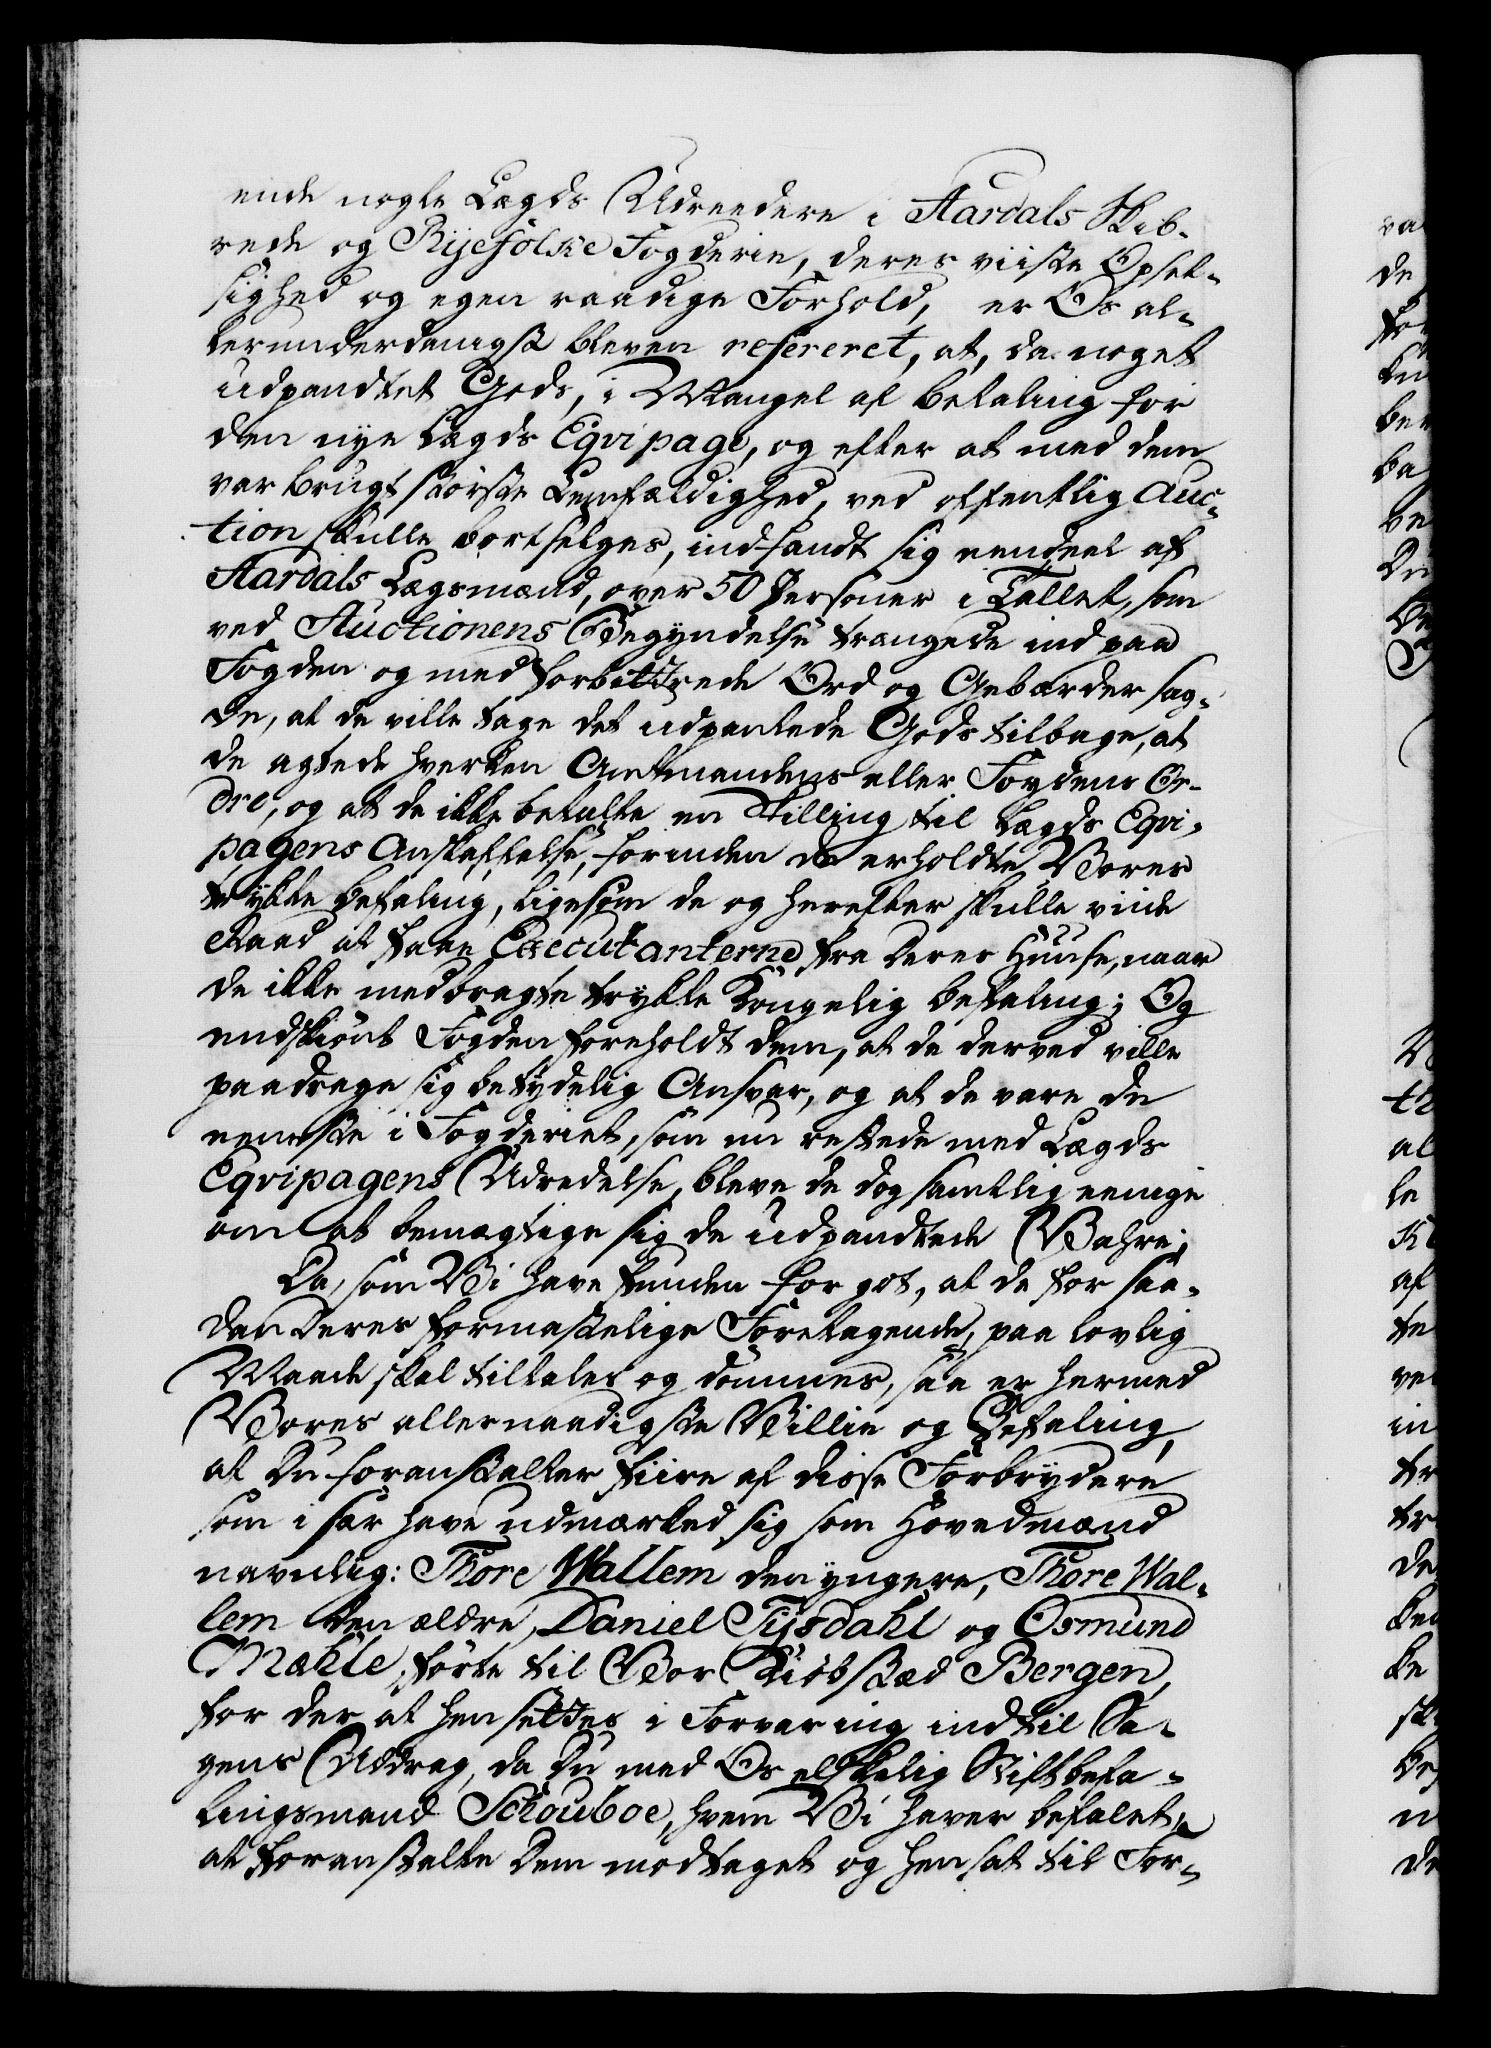 ende nogle Lægds Udreedere i Aardals Skib-
rede og Ryefølke Fogderie, deres viiste Opset-
sighed og egen raadige Forhold, er Os al-
lerunderdanigst bleven refereret, at, da noget
udpandtet Gods, i Mangel af Betaling for
den nye Lægds Eqvipage, og efter at med dem
var brugt största Lemfældighed, ved offentlig Auc-
tion skulle bortselges, indfandt sig eendeel af
Aardals Lægsmænd, over 50 Personer i Tallet, som
ved Auctionens Begyndelse trængede ind paa
Fogden og med forbittrede Ord og Gebærder sag-
de, at de ville tage det udpantede Gods tilbage, at
de agtede hverken Amtmandens eller Fogdens Or-
dre, og at de ikke betalte en Skilling til Lægds Eqvi-
pagens Anskaffelse, forinden de erholdte Vores
trykte Befaling, ligesom de og herefter skulle viide
Raad at faae Executanterne fra deres Huuse, naar
de ikke medbragte trykte Kongelig Befaling; Og
endskiønt Fogden foreholdt dem, at de derved ville
paadrage sig betydelig Ansvar, og at de vare de
eeneste i Fogderiet, som nu restede med Lægds
Eqvipagens Udredelse, bleve de dog samtlig eenige
om at bemægtige sig de udpandtede Vahre;
Da, som Vi have funden for got, at de for saa-
dan deres formastelige Foretagende, paa lovlig
Maade skal tiltales og dømmes, saa er hermed
Vores allernaadigste Villie og Befaling,
at Du foranstalter fiire af disse Forbrydere
som i sær have udmærked sig som Hovedmænd
navnlig: Thore Wallem den yngere, Thore Wal-
lem den ældre, Daniel Tysdahl og Osmund
Mæhle, førte til Vor Kiøbstæd Bergen,
for der at hensettes i Forvaring indtil Sa-
gens Uddrag, da Du med Os elskelig Stiftbefa-
lingsmand Schouboe, hvem Vi haver befalet,
at foranstalte dem modtaget og hensat til For-